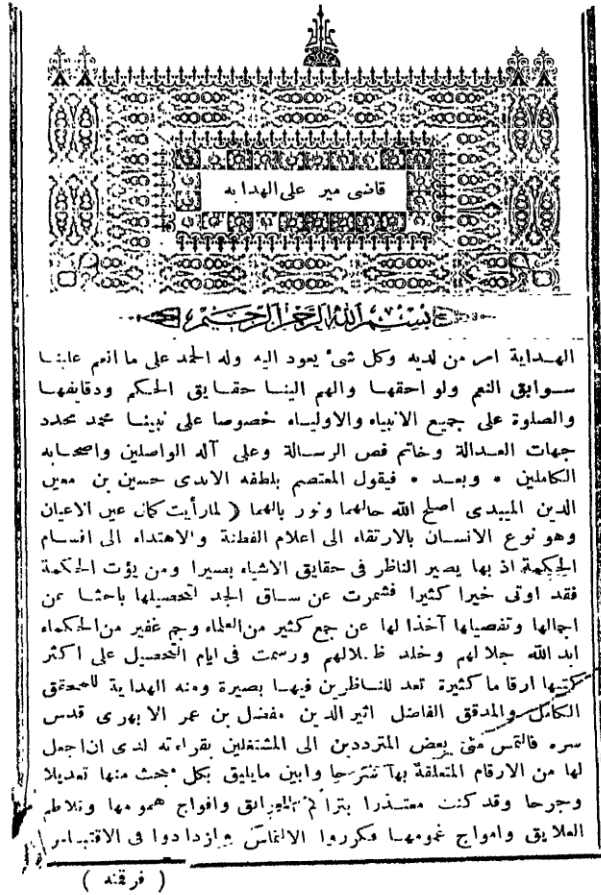 قاضى مير على الهدايه
بسم الله الرحمن الرحيم
الهداية امر من لديه وكل شئ يعود اليه وله الحمد على ما انعم علينا
سوابق النعم ولواحقها والهم الينا حقايق الحكم ودقايقها
والصلوة على جميع الانبياء والاولياء خصوصا على نبينا محمد محدد
جهات العدالة وخاتم فص الرسالة وعلى آله الواصلين واصحابه
الكاملين * وبعد * فيقول المعتصم بلطفه الابدى حسين بن معين
الدين الميبدى اصلح الله حالهما ونور بالهما ( لما رأيت كمال عين الاعيان
وهو نوع الانسان بالارتقاء الى اعلام الفطنة والاهتداء الى اقسام
الحكمة اذ بها يصير الناظر فى حقايق الاشياء بصيرا ومن يؤت الحكمة
فقد اوتى خيرا كثيرا فشمرت عن ساق الجد لتحصيلها باحثا عن
اجمالها وتفصيلها آخذا لها عن جمع كثير من العلماء وجم غفير من الحكماء
ابد الله جلالهم وخلد ظلالهم ورسمت فى ايام التحصيل على اكثر
كتبها ارقاما كثيرة تعد للناظرين فيها بصيرة ومنه الهداية للمحقق
الكامل والمدقق الفاضل اثير الدين مفضل بن عمر الابهرى قدس
سره فالتمس منى بعض المترددين الى المشتغلين بقراءته لدى ان اجعل
لها من الارقام المتعلقة بها شرحا وابين ما يليق بكل مبحث منها تعديلا
وجرحا وقد كنت معتذرا بتراكم العوائق وافواج همومها وتلاطم
العلايق وامواج غمومها فكرروا الالتماس وازدادوا فى الاقتباس
( فرقنه )